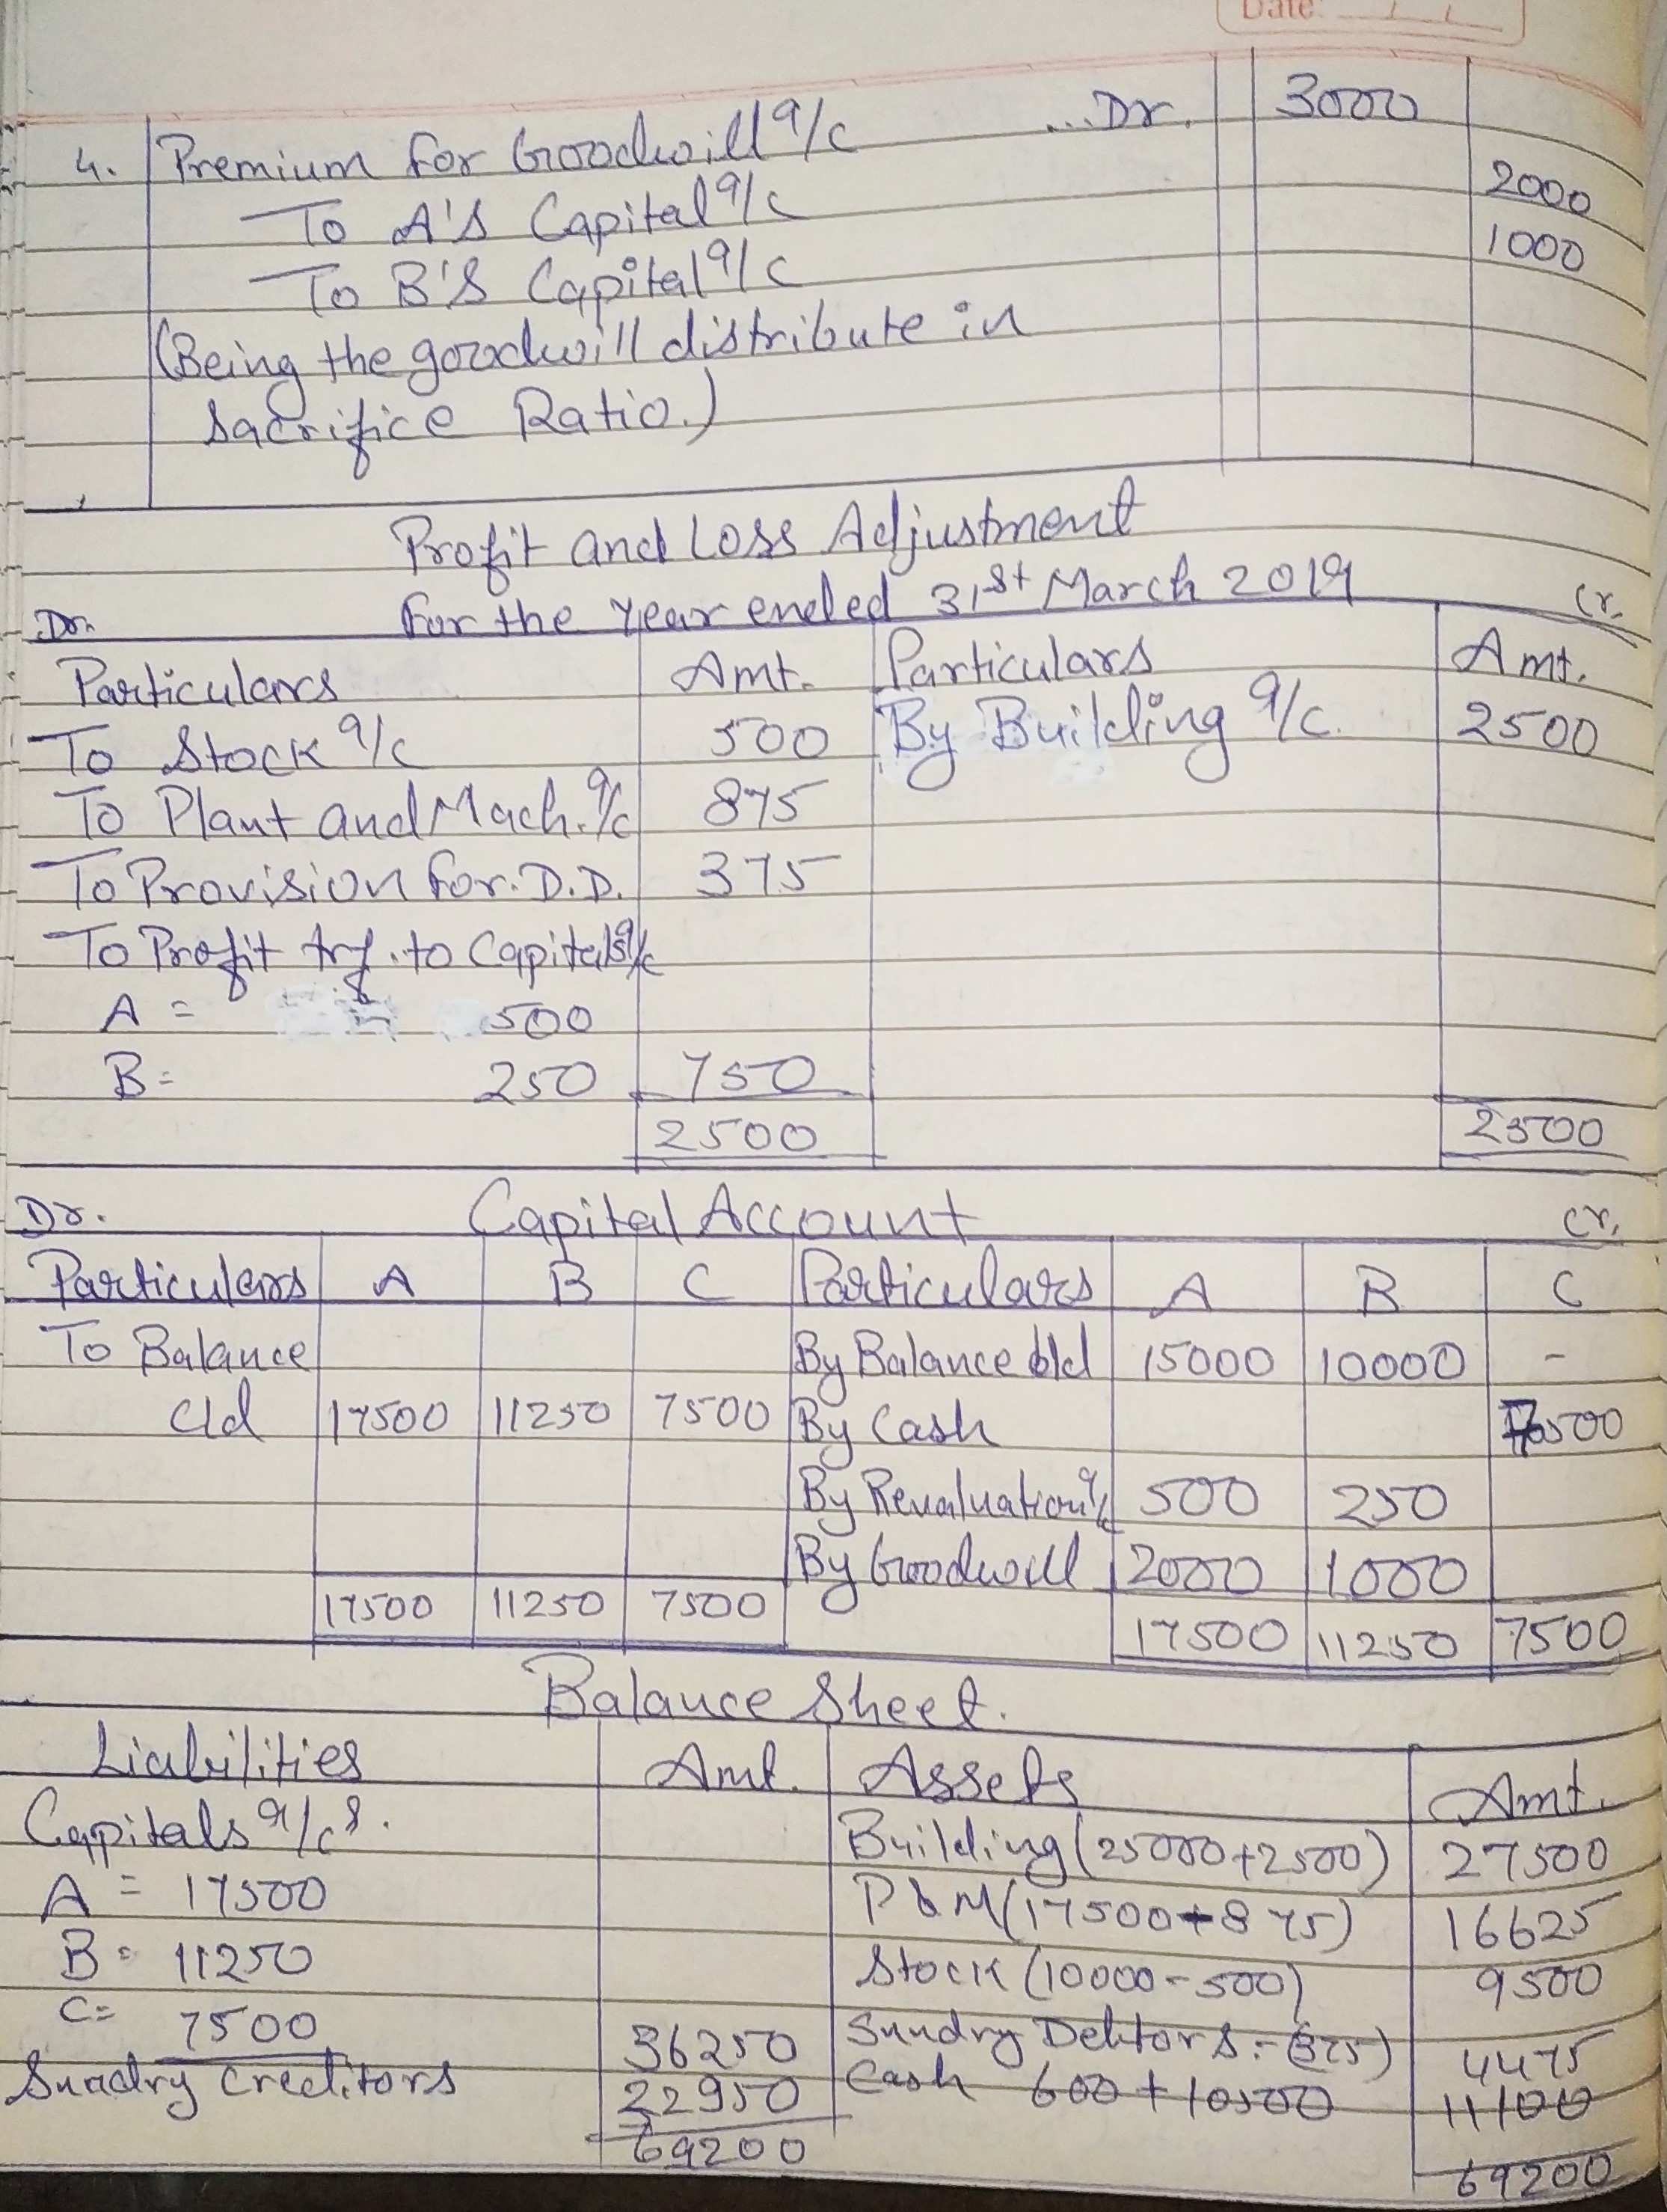 Date: / /
4. Premium for Goodwill a/c ...Dr. 3000
To A's Capital a/c 2000
To B's Capital a/c 1000
(Being the goodwill distribute in
Sacrifice Ratio.)
Profit and Loss Adjustment
Dr. For the Year ended 31st March 2019 Cr.
Particulars Amt. Particulars Amt.
To Stock a/c 500 By Building a/c. 2500
To Plant and Mach. a/c 875
To Provision for. D.D. 375
To Profit trf. to Capitals a/c
A = 500
B = 250 750
2500 2500
Dr. Capital Account Cr.
Particulars A B C Particulars A B C
To Balance By Balance b/d 15000 10000 -
c/d 17500 11250 7500 By Cash 7500
By Revaluation a/c 500 250
By Goodwill 2000 1000
17500 11250 7500 17500 11250 7500
Balance Sheet.
Liabilities Amt. Assets Amt.
Capitals a/cs. Building (25000+2500) 27500
A = 17500 P&M (17500-875) 16625
B = 11250 Stock (10000-500) 9500
C = 7500 36250 Sundry Debtors :- (375) 4475
Sundry Creditors 22950 Cash 600 + 10500 11100
69200 69200